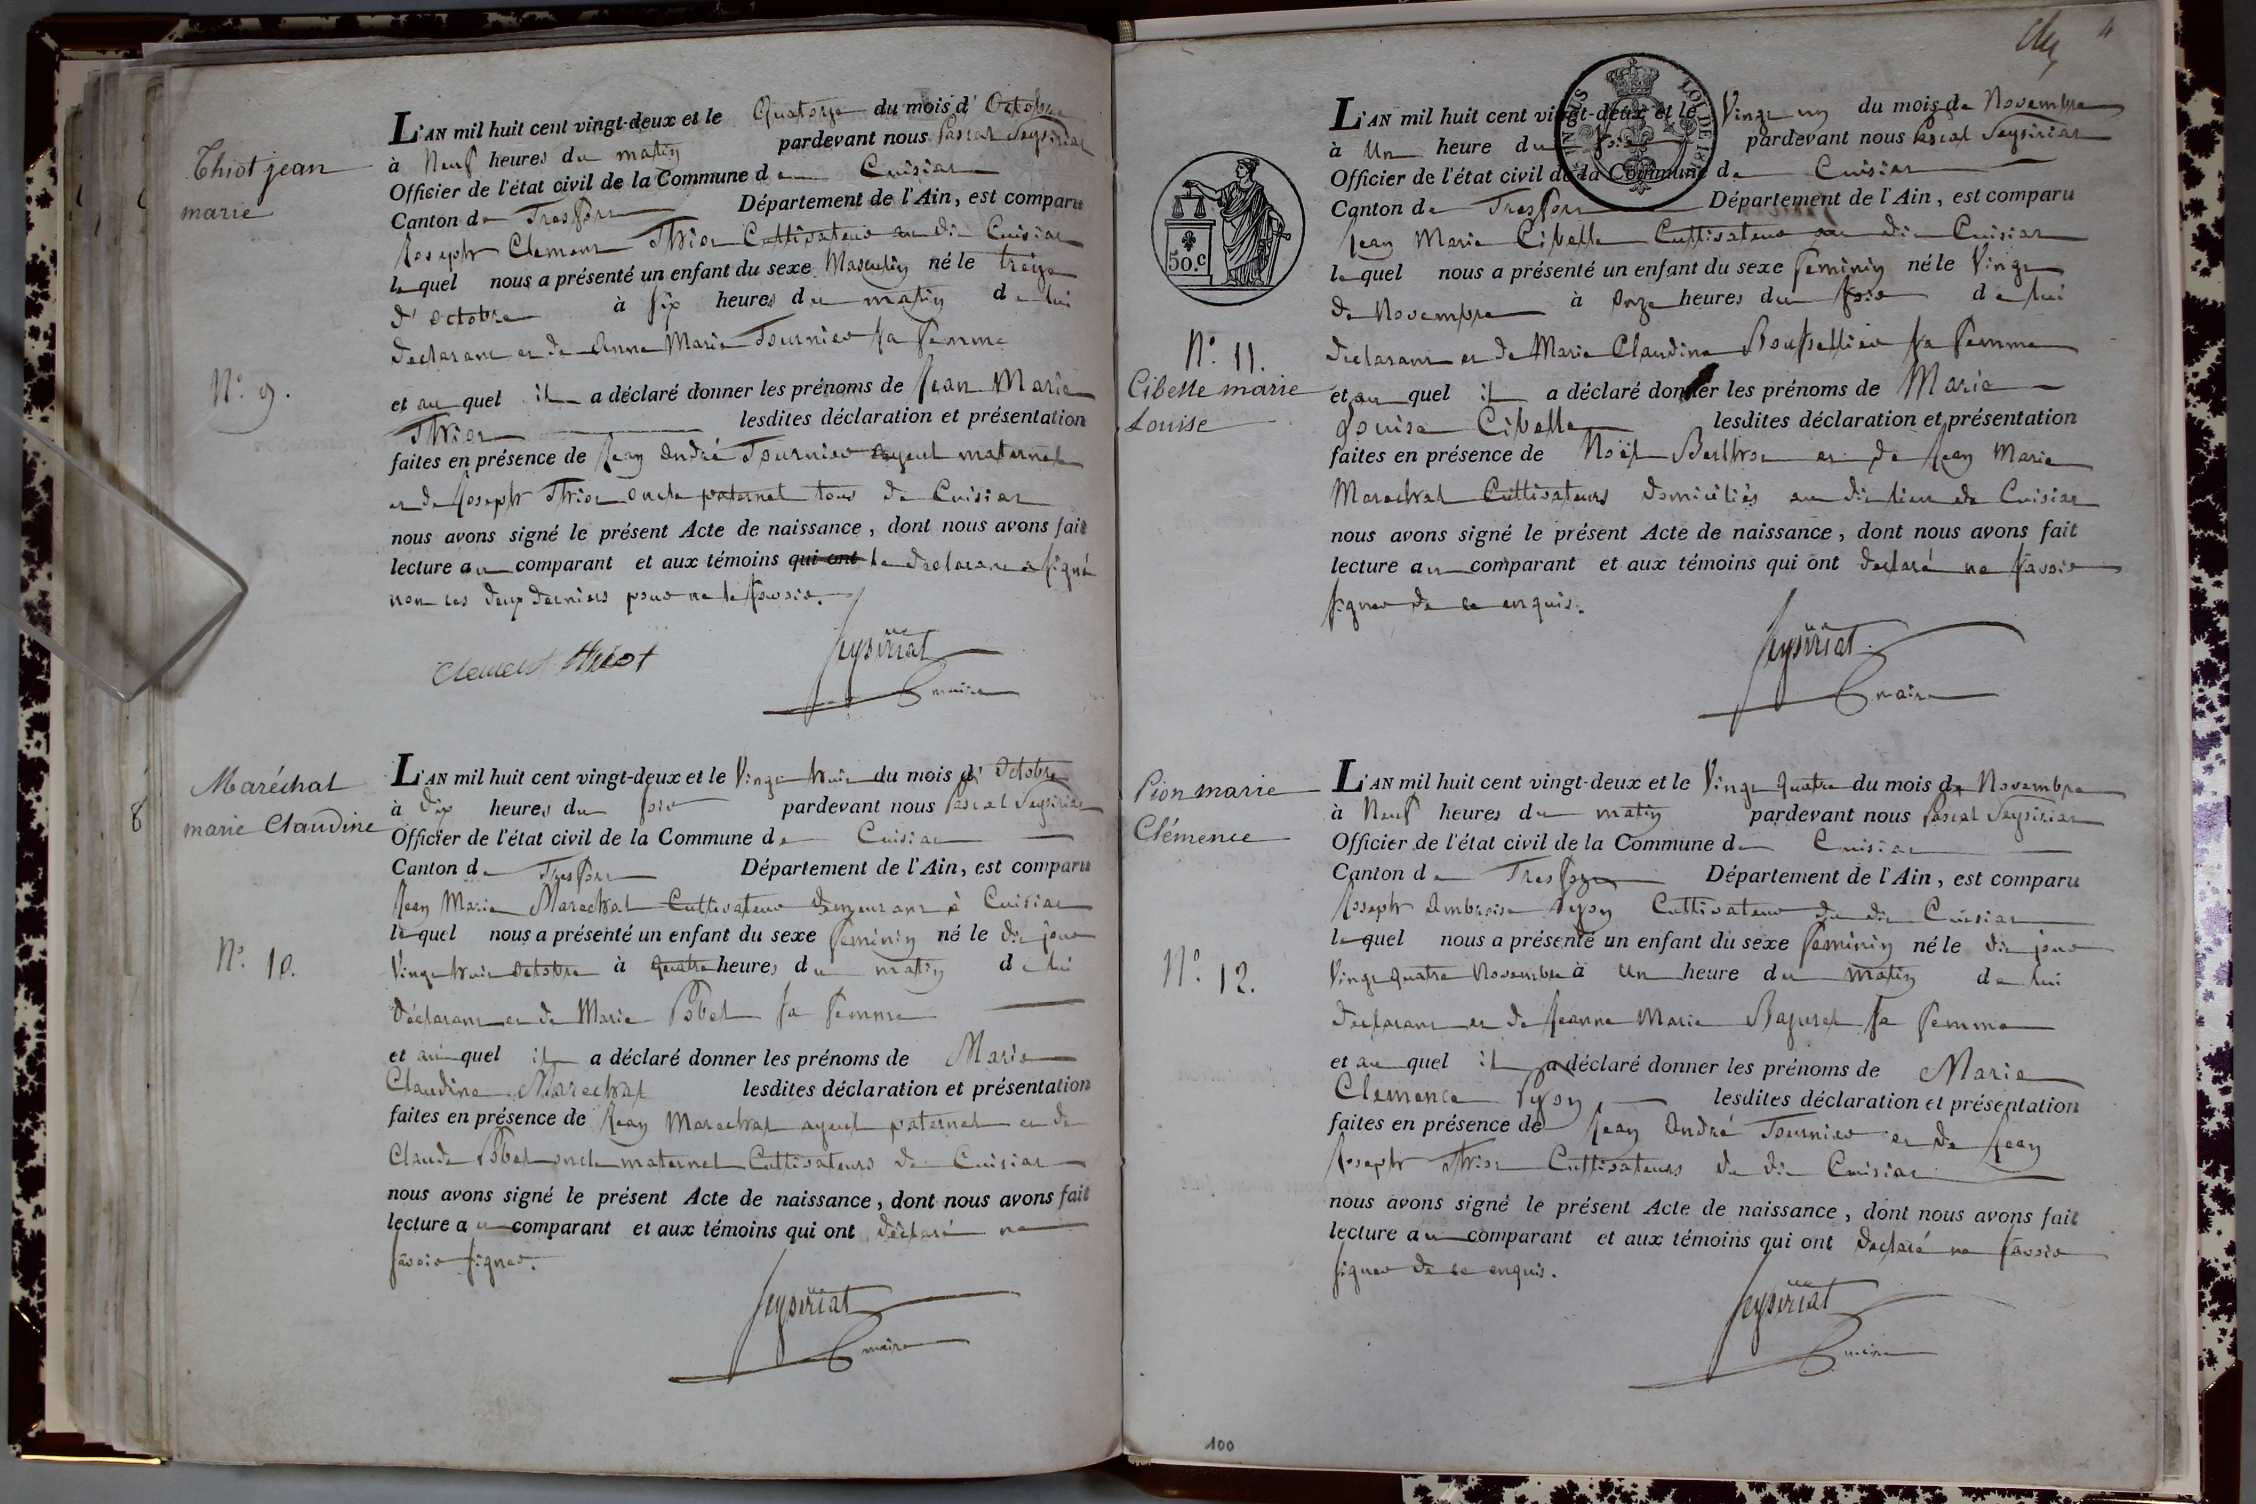 Thiot jean
marie
N.º 9.
L'AN mil huit cent vingt-deux et le Quatorze du mois d' Octobre
à Neuf heures du matin pardevant nous Pascal Seysiriat
Officier de l'état civil de la Commune de Cuisiat
Canton de Treffort Département de l'Ain, est comparu
Joseph Clement Thiot Cultivateur au dit Cuisiat
lequel nous a présenté un enfant du sexe Masculin né le treize
d'octobre à six heures du matin de lui
declarant et de Anne Marie Tournier sa femme
et au quel il a déclaré donner les prénoms de Jean Marie
Thiot lesdites déclaration et présentation
faites en présence de Jean André Tournier ayeul maternel
et de Joseph Thiot oncle paternel tous de Cuisiat
nous avons signé le présent Acte de naissance, dont nous avons fait
lecture au comparant et aux témoins qui ont le declarant a signé
non les deux derniers pour ne le savoir.
Clement thiot
Seysiriat
maire
Maréchal
marie Claudine
8
N.º 10.
L'AN mil huit cent vingt-deux et le Vingt huit du mois d' Octobre
à Dix heures du soir pardevant nous Pascal Seysiriat
Officier de l'état civil de la Commune de Cuisiat
Canton de Treffort Département de l'Ain, est comparu
Jean Marie Marechal Cultivateur demeurant à Cuisiat
lequel nous a présenté un enfant du sexe feminin né le dit jour
Vingt huit octobre à quatre heures du matin de lui
Déclarant et de Marie Pobel sa femme
et au quel il a déclaré donner les prénoms de Marie
Claudine Marechal lesdites déclaration et présentation
faites en présence de Jean Marechal ayeul paternel et de
Claude Pobel oncle maternel Cultivateurs de Cuisiat
nous avons signé le présent Acte de naissance, dont nous avons fait
lecture au comparant et aux témoins qui ont déclaré ne
savoir signer.
Seysiriat
maire
4
50.c
N.º 11.
Cibelle marie
Louise
L'AN mil huit cent vingt-deux et le Vingt un du mois de Novembre
à Un heure du soir pardevant nous Pascal Seysiriat
Officier de l'état civil de la Commune de Cuisiat
Canton de Treffort Département de l'Ain, est comparu
Jean Marie Cibelle Cultivateur au dit Cuisiat
lequel nous a présenté un enfant du sexe feminin né le Vingt
de Novembre à onze heures du soir de lui
declarant et de Marie Claudine Boussellier sa femme
et au quel il a déclaré donner les prénoms de Marie
Louise Cibelle lesdites déclaration et présentation
faites en présence de Noël Berthot et de Jean Marie
Marechal Cultivateurs domiciliés au dit lieu de Cuisiat
nous avons signé le présent Acte de naissance, dont nous avons fait
lecture au comparant et aux témoins qui ont declaré ne savoir
signer de ce enquis.
Seysiriat
maire
Pion marie
Clémence
N.º 12.
L'AN mil huit cent vingt-deux et le Vingt quatre du mois de Novembre
à Neuf heures du matin pardevant nous Pascal Seysiriat
Officier de l'état civil de la Commune de Cuisiat
Canton de Treffort Département de l'Ain, est comparu
Joseph Ambroise Pyon Cultivateur du dit Cuisiat
lequel nous a présenté un enfant du sexe feminin né le dit jour
Vingt quatre Novembre à Un heure du matin de lui
declarant et de Jeanne Marie sa femme
et au quel il a déclaré donner les prénoms de Marie
Clemence Pyon lesdites déclaration et présentation
faites en présence de Jean André Tournier et de Jean
Joseph Thiot Cultivateurs du dit Cuisiat
nous avons signé le présent Acte de naissance, dont nous avons fait
lecture au comparant et aux témoins qui ont declaré ne savoir
signer de ce enquis.
Seysiriat
maire
100